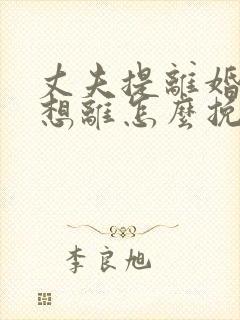 丈夫提離婚
想離怎麼挽
李良旭